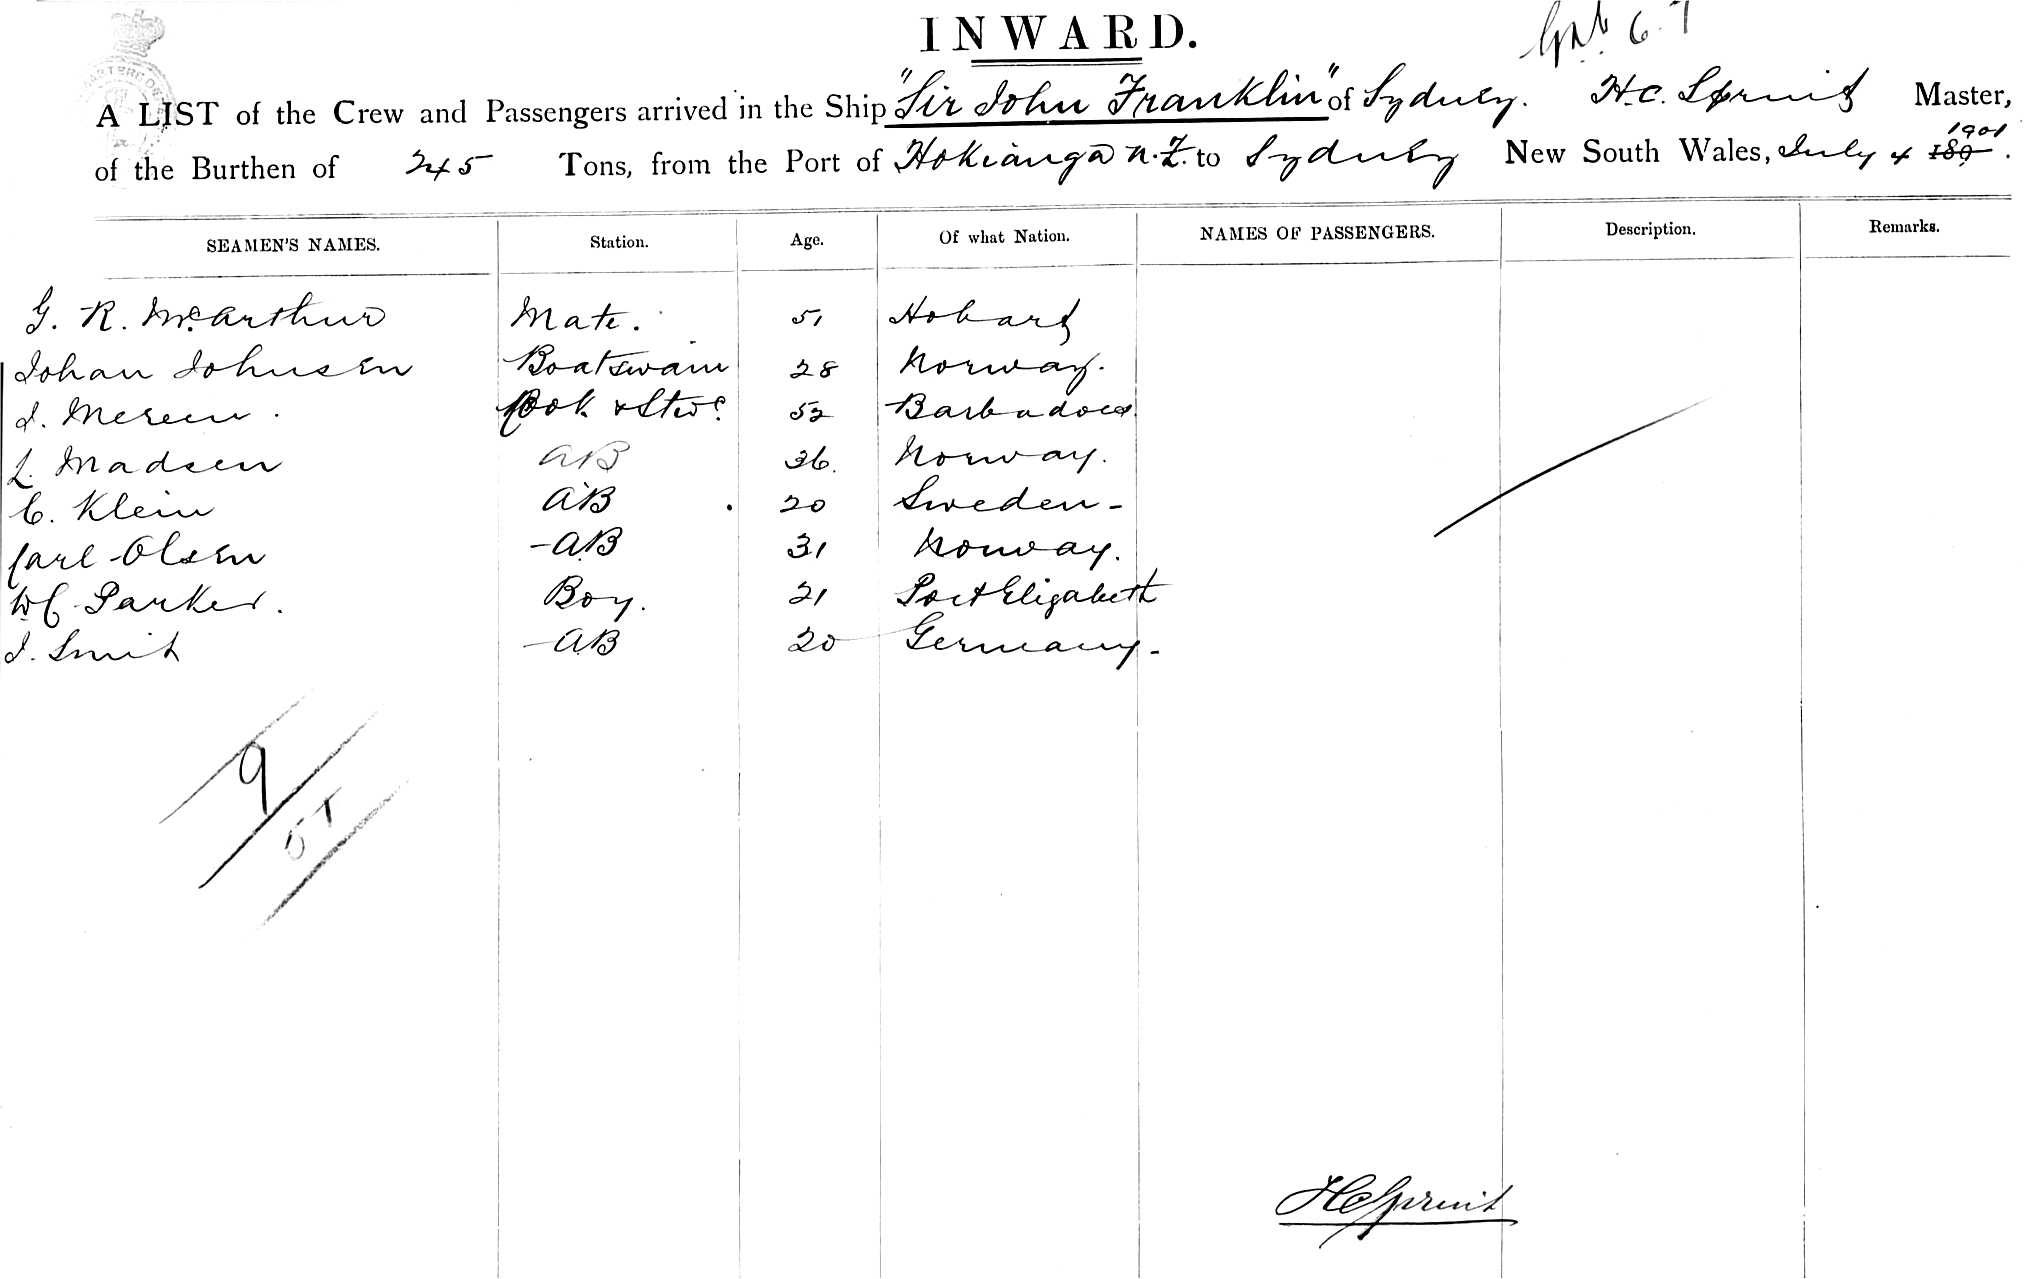 INWARD.
6.7
A LIST of the Crew and Passengers arrived in the Ship "Sir John Franklin" of Sydney. H.C. Spruit Master,
of the Burthen of 245 Tons, from the Port of Hokianga N.Z. to Sydney New South Wales, July 4 1901 189 .
SEAMEN'S NAMES. Station. Age. Of what Nation. NAMES OF PASSENGERS. Description. Remarks.
G. R. McArthur Mate. 51 Hobart
Johan Johnsen Boatswain 28 Norway.
J. Mereen Cook & Stwd 52 Barbadoes
L. Madsen AB 36. Norway.
C. Klein AB 20 Sweden -
Carl Olsen - AB 31 Norway.
W C Parker. Boy. 21 Port Elizabeth
J. Smit - AB 20 Germany -
9
51
HC Spruit